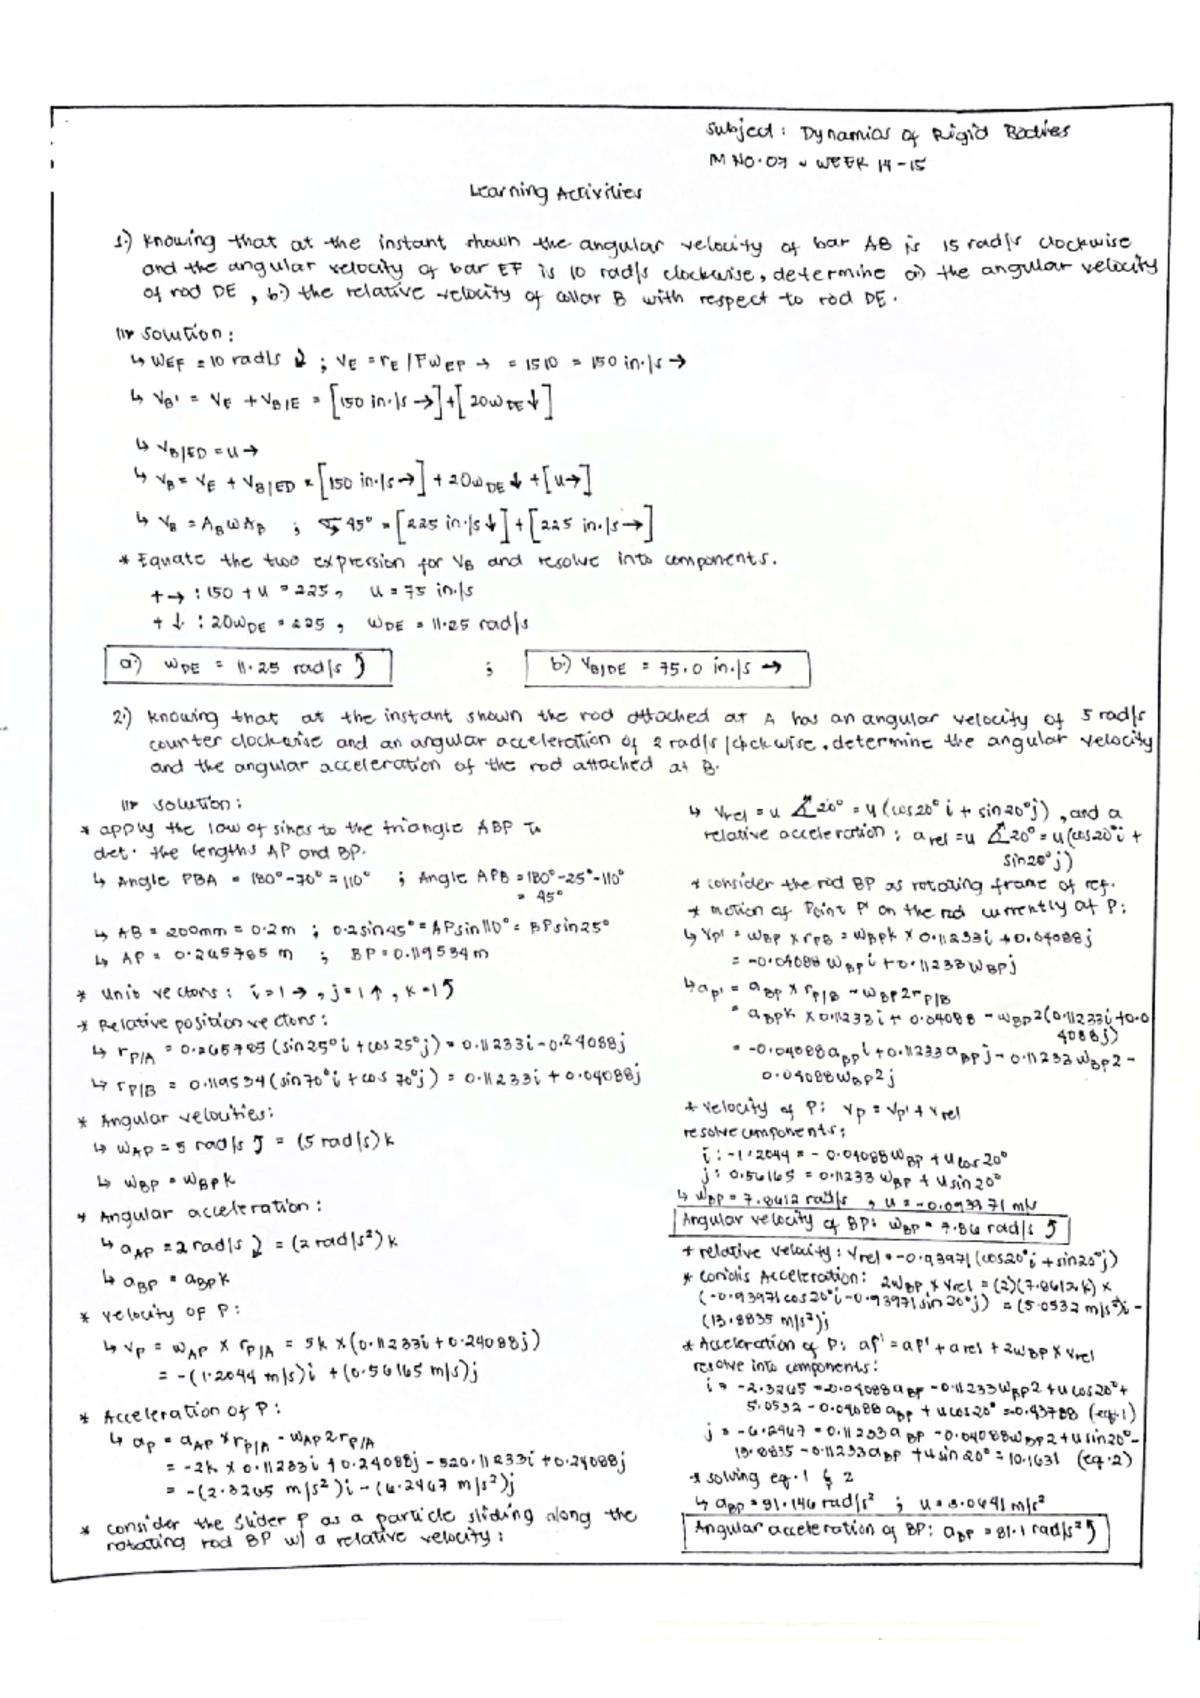 Subject: Dynamics of Rigid Bodies
M NO. 07 - WEEK 14-15
Learning Activities
1.) Knowing that at the instant shown the angular velocity of bar AB is 15 rad/s clockwise
and the angular velocity of bar EF is 10 rad/s clockwise, determine a) the angular velocity
of rod DE, b.) the relative velocity of collar B with respect to rod DE.
Solution:
↳ WEF = 10 rad/s ↻ ; VE = rE/FWEF → = 1510 = 150 in./s →
↳ VB' = VE + VB/E = [150 in./s →] + [20WDE ↓]
↳ VB/ED = u →
↳ VB = VE + VB/ED = [150 in./s →] + 20WDE ↓ + [u →]
↳ VB = ABWAB ; 45° = [225 in./s ↓] + [225 in./s →]
* Equate the two expression for VB and resolve into components.
+ → : 150 + u = 225, u = 75 in./s
+ ↓ : 20WDE = 225, WDE = 11.25 rad/s
a.) WDE = 11.25 rad/s ↺ ; b.) VB/DE = 75.0 in./s →
2.) Knowing that at the instant shown the rod attached at A has an angular velocity of 5 rad/s
counter clockwise and an angular acceleration of 2 rad/s clockwise, determine the angular velocity
and the angular acceleration of the rod attached at B.
Solution:
* apply the law of sines to the triangle ABP to
det. the lengths AP and BP.
↳ Angle PBA = 180° - 70° = 110° ; Angle APB = 180° - 25° - 110°
= 45°
↳ AB = 200mm = 0.2 m ; 0.2sin45° = APsin110° = BPsin25°
↳ AP = 0.265785 m ; BP = 0.119534 m
* Unit vectors: i = 1 →, j = 1 ↑, k = 1 ↺
* Relative position vectors:
↳ rP/A = 0.265785 (sin25°i + cos25°j) = 0.11233i - 0.24088j
↳ rP/B = 0.119534 (sin70°i + cos70°j) = 0.11233i + 0.04088j
* Angular velocities:
↳ WAP = 5 rad/s ↺ = (5 rad/s)k
↳ WBP = WBPk
* Angular acceleration:
↳ aAP = 2 rad/s ↻ = (2 rad/s²)k
↳ aBP = aBPk
* Velocity of P:
↳ VP = WAP x rP/A = 5k x (0.11233i + 0.24088j)
= -(1.2044 m/s)i + (0.56165 m/s)j
* Acceleration of P:
↳ aP = aAP x rP/A - WAP2rP/A
= -2k x 0.11233i + 0.24088j - 520.11233i + 0.24088j
= -(2.3265 m/s²)i - (6.2467 m/s²)j
* consider the slider P as a particle sliding along the
rotating rod BP w/ a relative velocity:
↳ Vrel = u ∠20° = u (cos20°i + sin20°j), and a
relative acceleration; arel = u ∠20° = u(cos20°i +
sin20°j)
* consider the rod BP as rotating frame of ref.
* motion of Point P' on the rod currently at P:
↳ VP' = WBP x rPB = WBPk x 0.11233i + 0.04088j
= -0.04088 WBPi + 0.11233 WBPj
↳ aP' = aBP x rP/B - WBP2rP/B
= aBPk x 0.11233i + 0.04088 - WBP2(0.11233i + 0.0
4088j)
= -0.04088aBPi + 0.11233aBPj - 0.11233WBP2 -
0.04088WBP2j
* Velocity of P: VP = VP' + Vrel
resolve components:
i: -1.2044 = -0.04088WBP + u cos20°
j: 0.56165 = 0.11233 WBP + u sin20°
↳ WBP = 7.8612 rad/s , u = -0.93971 m/s
Angular velocity of BP: WBP = 7.86 rad/s ↺
+ relative velocity: Vrel = -0.93971 (cos20°i + sin20°j)
* Coriolis Acceleration: 2WBP x Vrel = (2)(7.8612k) x
(-0.93971cos20°i - 0.93971sin20°j) = (5.0532 m/s²)i -
(13.8835 m/s²)j
* Acceleration of P: aP' = aP' + arel + 2WBP x Vrel
resolve into components:
i = -2.3265 = -0.04088aBP - 0.11233WBP2 + u cos20° +
5.0532 - 0.04088 aBP + u cos20° = -0.43788 (eq.1)
j = -6.2467 = 0.11233aBP - 0.04088WBP2 + u sin20° -
13.8835 - 0.11233aBP + u sin20° = 10.1631 (eq.2)
* solving eq.1 & 2
↳ aBP = 81.146 rad/s² ; u = 3.0641 m/s²
Angular acceleration of BP: aBP = 81.1 rad/s² ↺